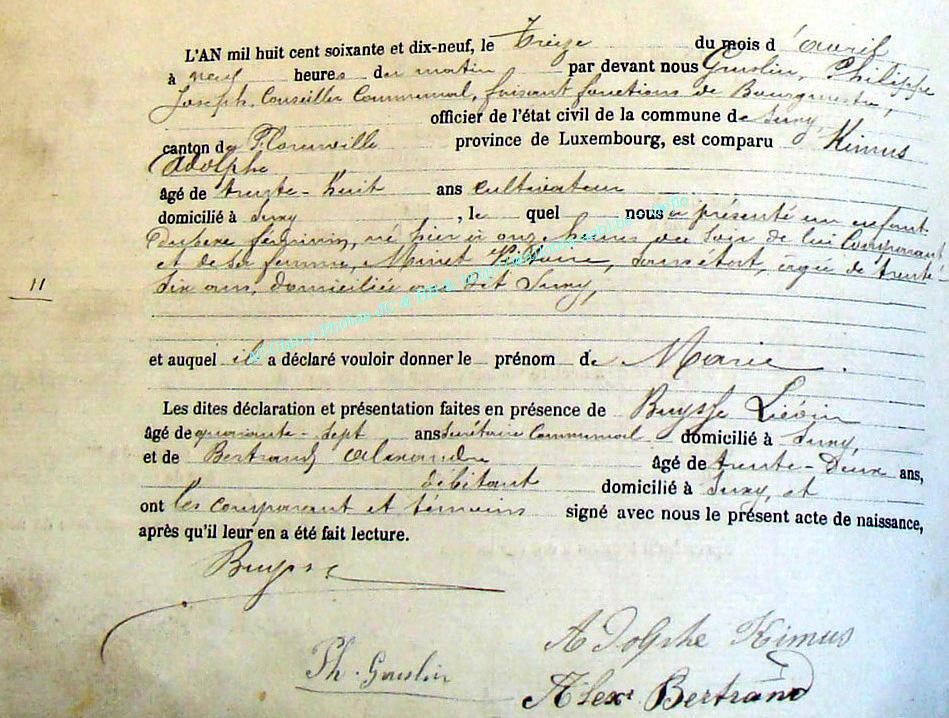 L'AN mil huit cent soixante et dix-neuf, le Treize du mois d'avril
à neuf heures du matin par devant nous Guislin, Philippe
Joseph, Conseiller Communal, faisant fonctions de Bourgmestre,
officier de l'état civil de la commune de Suxy,
canton de Florenville province de Luxembourg, est comparu Kimus
Adolphe
âgé de trente-huit ans cultivateur
domicilié à Suxy, lequel nous a présenté un enfant
du sexe féminin, né hier à onze heures du soir de lui Comparant
et de sa femme, Minet Victoire, sans état, âgée de trente
six ans, domiciliée au dit Suxy,
11
et auquel il a déclaré vouloir donner le prénom de Marie.
Les dites déclaration et présentation faites en présence de Buysse Liévin
âgé de quarante-sept ans Secrétaire Communal domicilié à Suxy,
et de Bertrand Alexandre âgé de trente-Deux ans,
débitant domicilié à Suxy, et
ont les comparant et témoins signé avec nous le présent acte de naissance,
après qu'il leur en a été fait lecture.
Buysse
Adolphe Kimus
Ph. Guislin
Alexr Bertrand